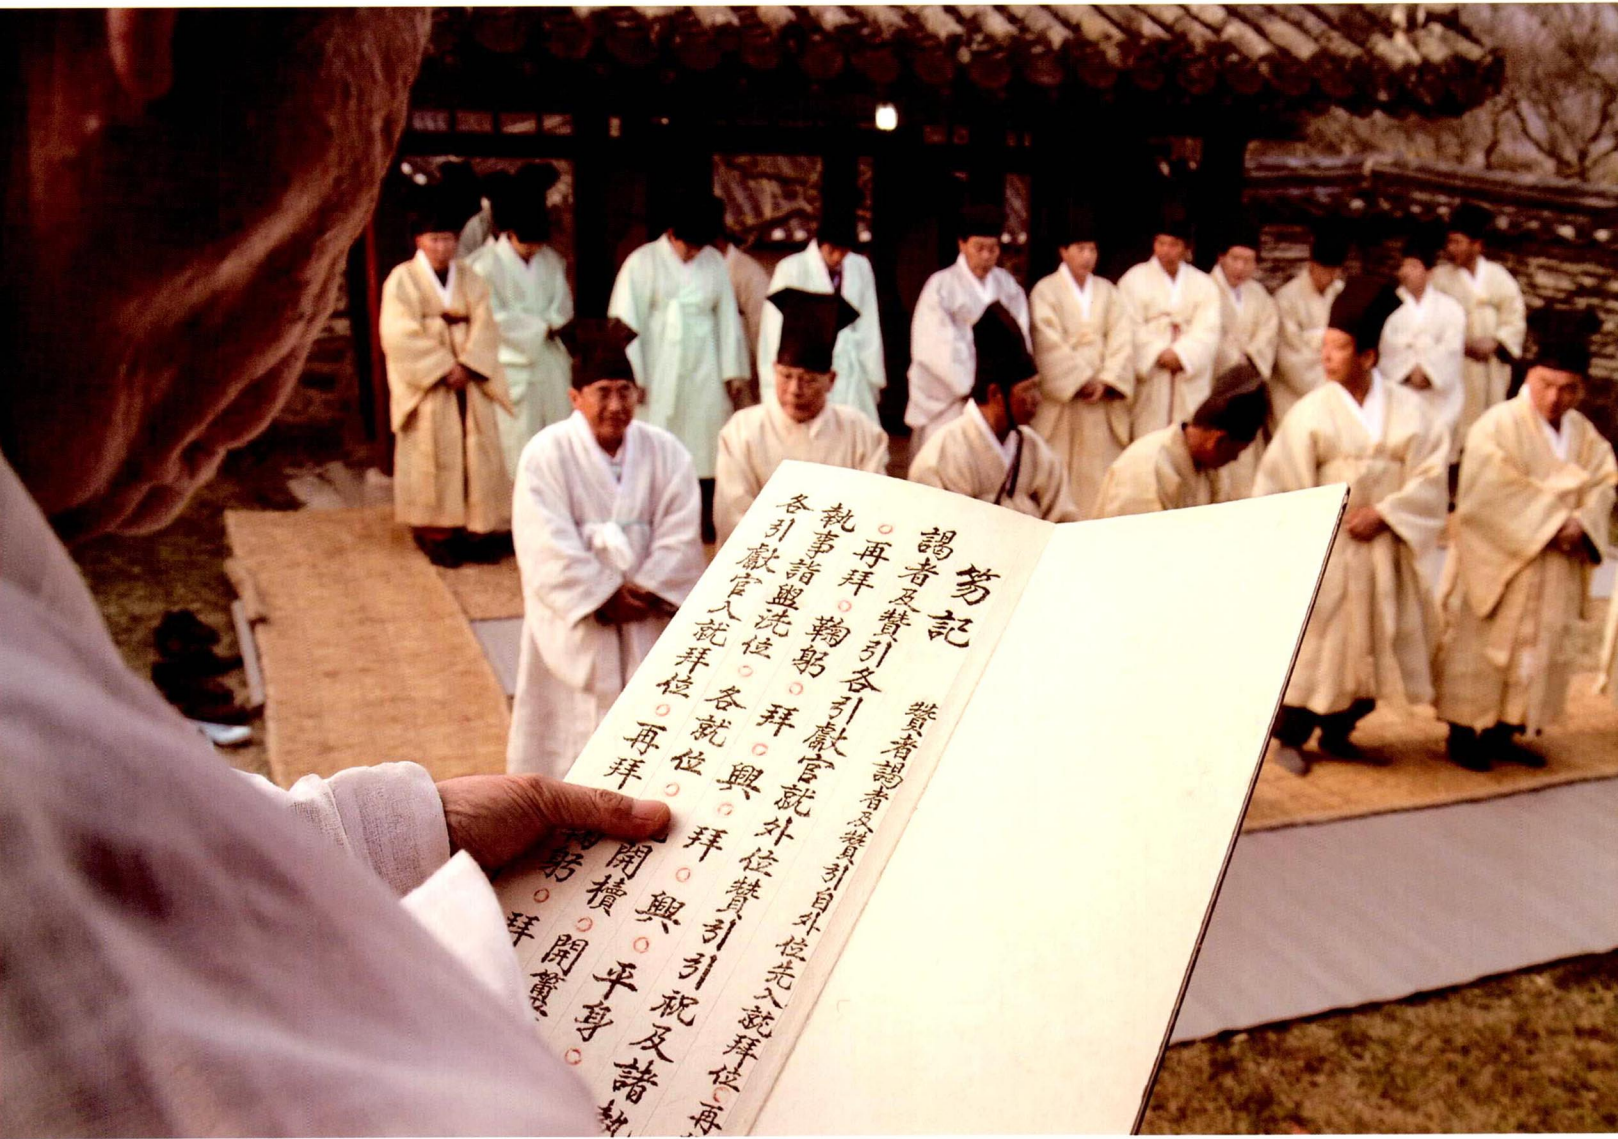 笏記 贊者謁者及贊引自外位先入就拜位○再
謁者及贊引各引獻官就外位贊引引祝及諸執
○再拜○鞠躬○拜○興○拜○興○平身○
執事詣盥洗位○各就位○開櫝○開
各引獻官入就拜位○再拜躬○拜